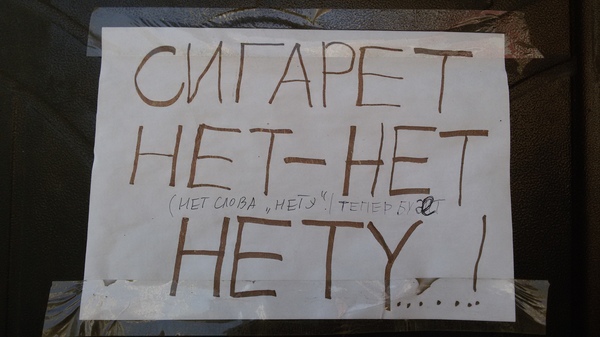 СИГАРЕТ
НЕТ-НЕТ
(НЕТ СЛОВА „НЕТУ".) ТЕПЕР БУДЕТ
НЕТУ......!